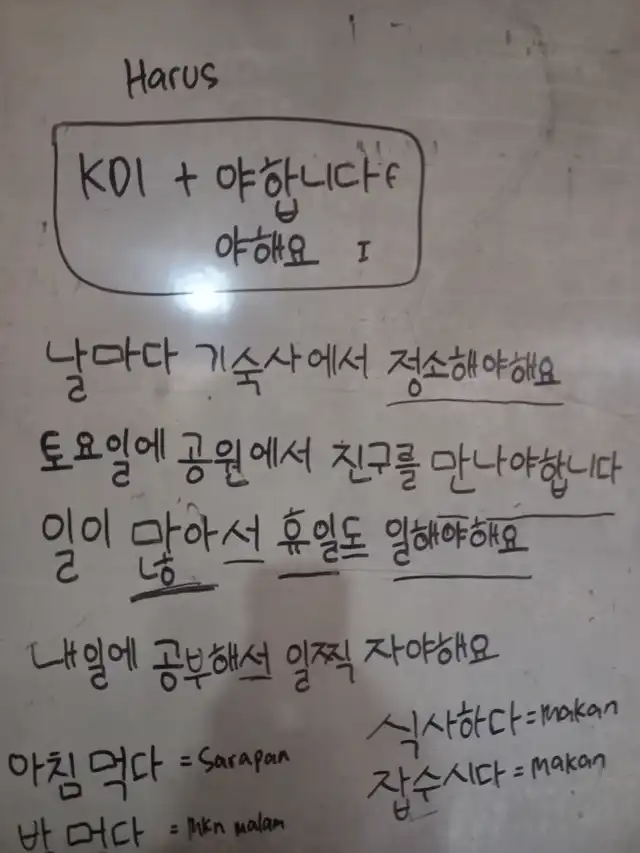 Harus
KDI + 야합니다 F
야해요 I
날마다 기숙사에서 정소해야해요
토요일에 공원에서 친구를 만나야합니다
일이 많아서 휴일도 일해야해요
내일에 공부해서 일찍 자야해요
식사하다 = makan
아침 먹다 = Sarapan
잡수시다 = Makan
= Mkn malam